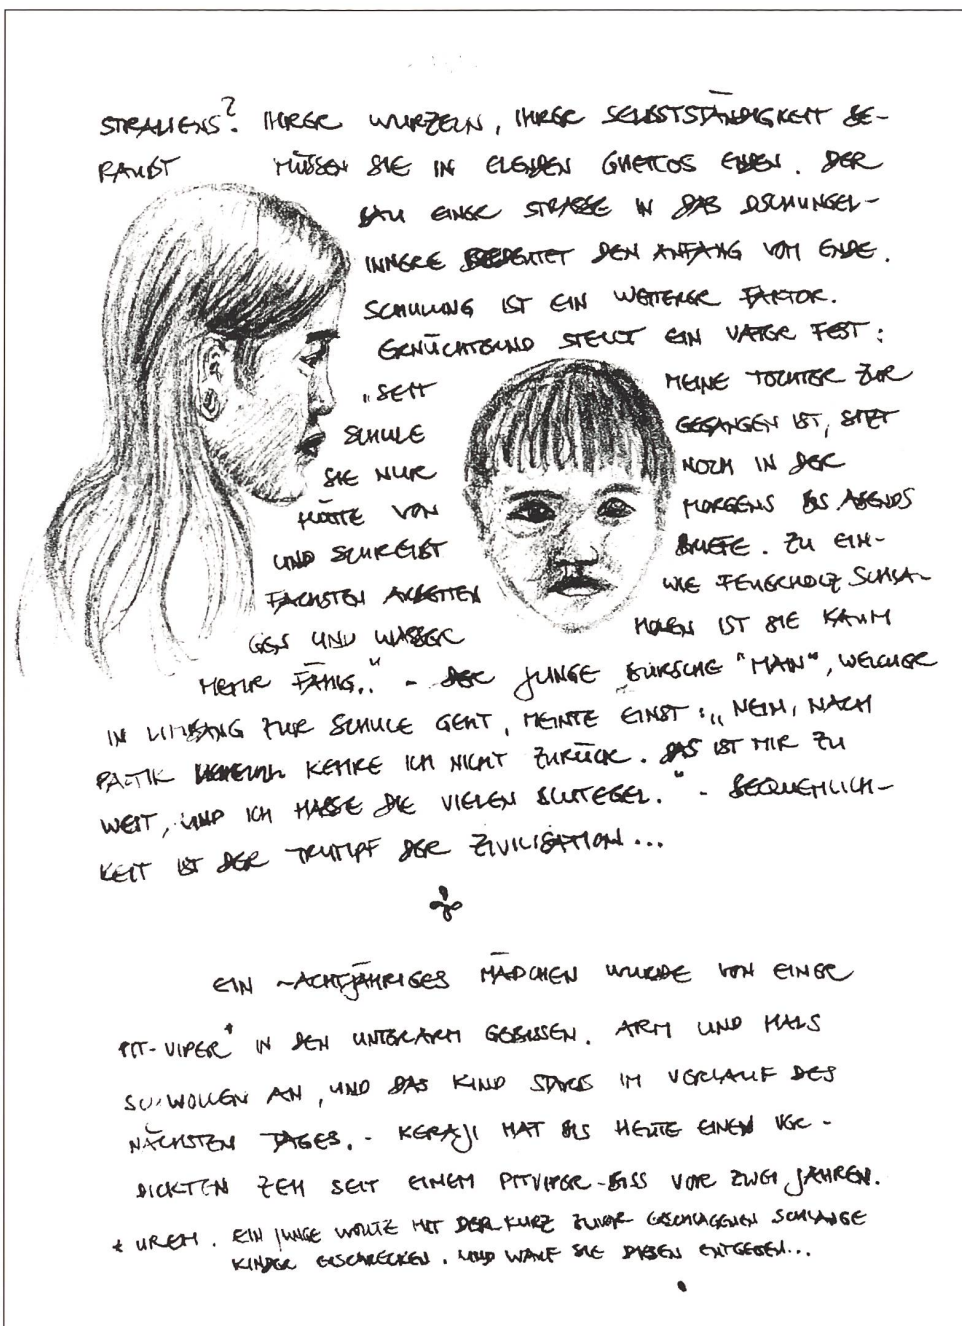 STRALIENS? IHRER WURZELN, IHRER SELBSTSTÄNDIGKEIT BE-
RAUBT MÜSSEN SIE IN ELENDEN GHETTOS ENDEN. DER
BAU EINER STRASSE IN DAS DSCHUNGEL-
INNERE BEDEUTET DEN ANFANG VOM ENDE.
SCHULUNG IST EIN WEITERER FAKTOR.
ERNÜCHTERND STELLT EIN VATER FEST:
„SEIT MEINE TOCHTER ZUR
SCHULE GEGANGEN IST, SITZT
SIE NUR NOCH IN DER
HÜTTE VON MORGENS BIS ABENDS
UND SCHREIBT BRIEFE. ZU EIN-
FACHSTEN ARBEITEN WIE FEUERHOLZ SCHLA-
GEN UND WASSER HOLEN IST SIE KAUM
MEHR FÄHIG." - DER JUNGE BURSCHE "MAN", WELCHER
IN LIMBANG ZUR SCHULE GEHT, MEINTE EINST: „NEIN, NACH
PATIK KEHRE ICH NICHT ZURÜCK. DAS IST MIR ZU
WEIT, UND ICH HASSE DIE VIELEN BLUTEGEL." - BEQUEMLICH-
KEIT IST DER TRUMPF DER ZIVILISATION...
EIN ~ACHTJÄHRIGES MÄDCHEN WURDE VON EINER
PIT-VIPER* IN DEN UNTERARM GEBISSEN. ARM UND HALS
SCHWOLLEN AN, UND DAS KIND STARB IM VERLAUF DES
NÄCHSTEN TAGES. - KERAJI HAT BIS HEUTE EINEN VER-
DICKTEN ZEH SEIT EINEM PITVIPER-BISS VOR ZWEI JAHREN.
* UREM. EIN JUNGE WOLLTE MIT DER KURZ ZUVOR ERSCHLAGENEN SCHLANGE
KINDER ERSCHRECKEN. UND WARF SIE DIESEN ENTGEGEN...